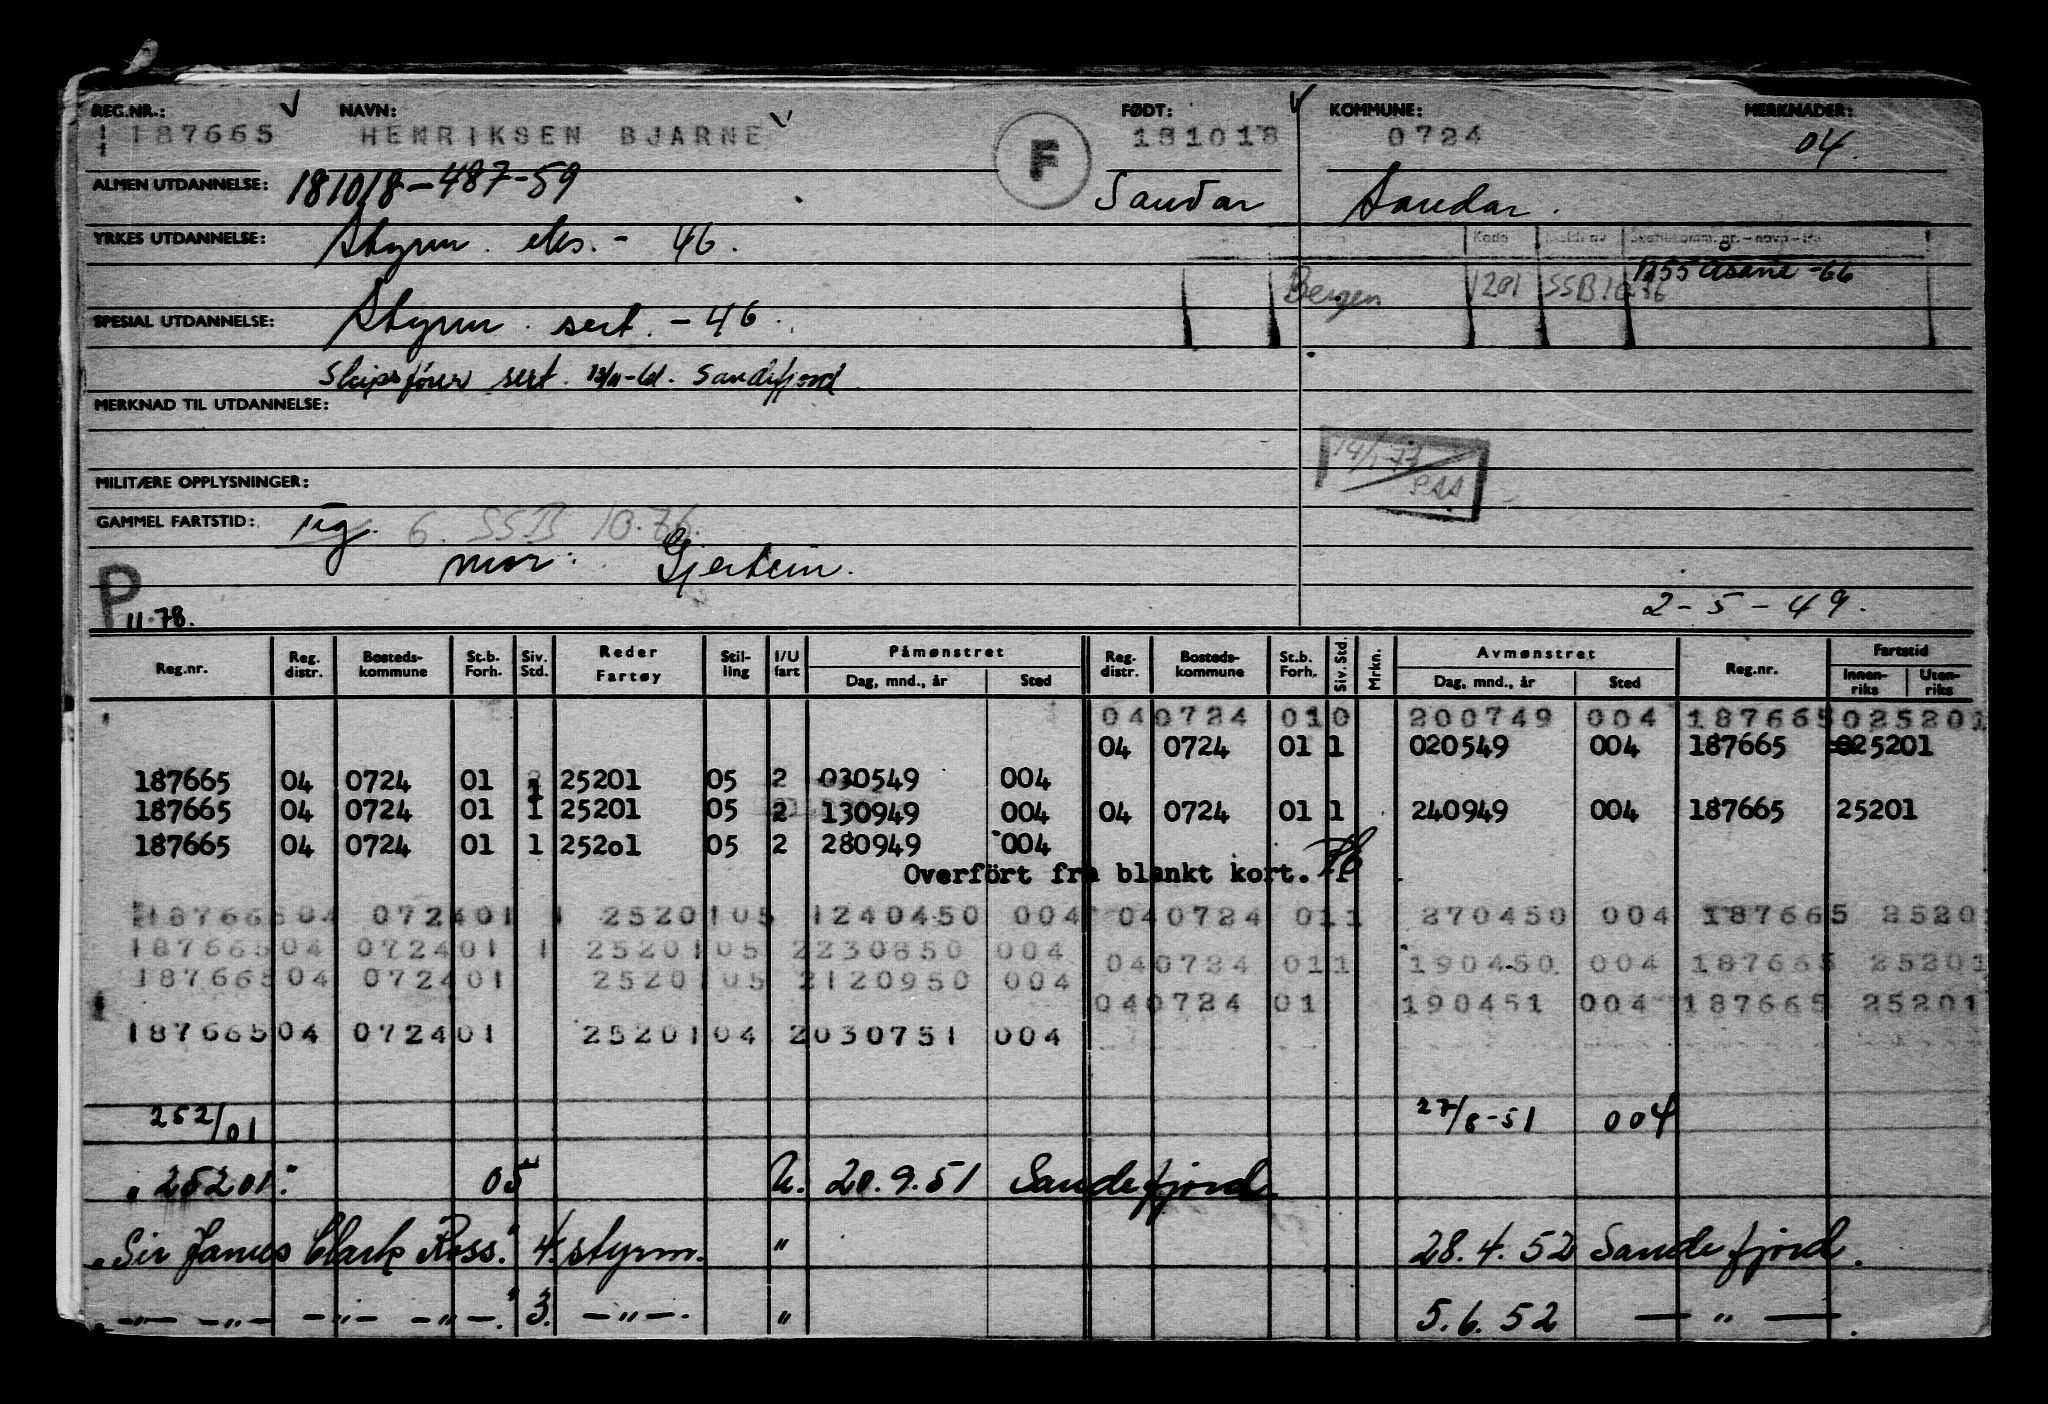 REG.NR.: NAVN: FØDT: KOMMUNE: MERKNADER:
187665 HENRIKSEN BJARNE F 181018 0724 04.
ALMEN UTDANNELSE: 181018-487-59 Sandar Sandar.
YRKES UTDANNELSE: Styrm. eks. - 46.
Kode Skattekomm. nr. - navn -
Bergen 1201 SSB 10.76 1255 Åsane -66
SPESIAL UTDANNELSE: Styrm. sert. - 46.
Skipsfører sert. 13/11-61. Sandefjord.
MERKNAD TIL UTDANNELSE:
MILITÆRE OPPLYSNINGER:
GAMMEL FARTSTID: 6. SSB 10.76.
mor: Gjertsen.
P 11.78. 2-5-49.
Reg.nr. Reg. distr. Bosteds-kommune St.b. Forh. Siv. Std. Reder Fartøy Stil-ling I/U fart Påmønstret Dag, mnd., år Sted Reg. distr. Bosteds-kommune St.b. Forh. Siv. Std. Mrkn. Avmønstret Dag, mnd., år Sted Reg.nr. Fartstid Innen-riks Uten-riks
04 0724 01 0 200749 004 187665 025201
04 0724 01 1 020549 004 187665 025201
187665 04 0724 01 1 25201 05 2 030549 004
187665 04 0724 01 1 25201 05 2 130949 004 04 0724 01 1 240949 004 187665 25201
187665 04 0724 01 1 252o1 05 2 280949 004
Overfört fra blankt kort.
187665 04 0724 01 1 25201 05 1 240450 004 04 0724 01 1 270450 004 187665 25201
187665 04 0724 01 1 25201 05 2 230850 004
04 0724 01 1 190450 004 187665 25201
187665 04 0724 01 25201 05 2 120950 004
04 0724 01 190451 004 187665 25201
187665 04 0724 01 25201 04 2 030751 004
252/01 27/8-51 004
"25201" 05 U. 20.9.51 Sandefjord
"Sir James Clark Ross." 4. styrm. " 28.4.52 Sandefjord.
" -"- -"- -"- -"-." 3. -"-. " 5.6.52 -"-.